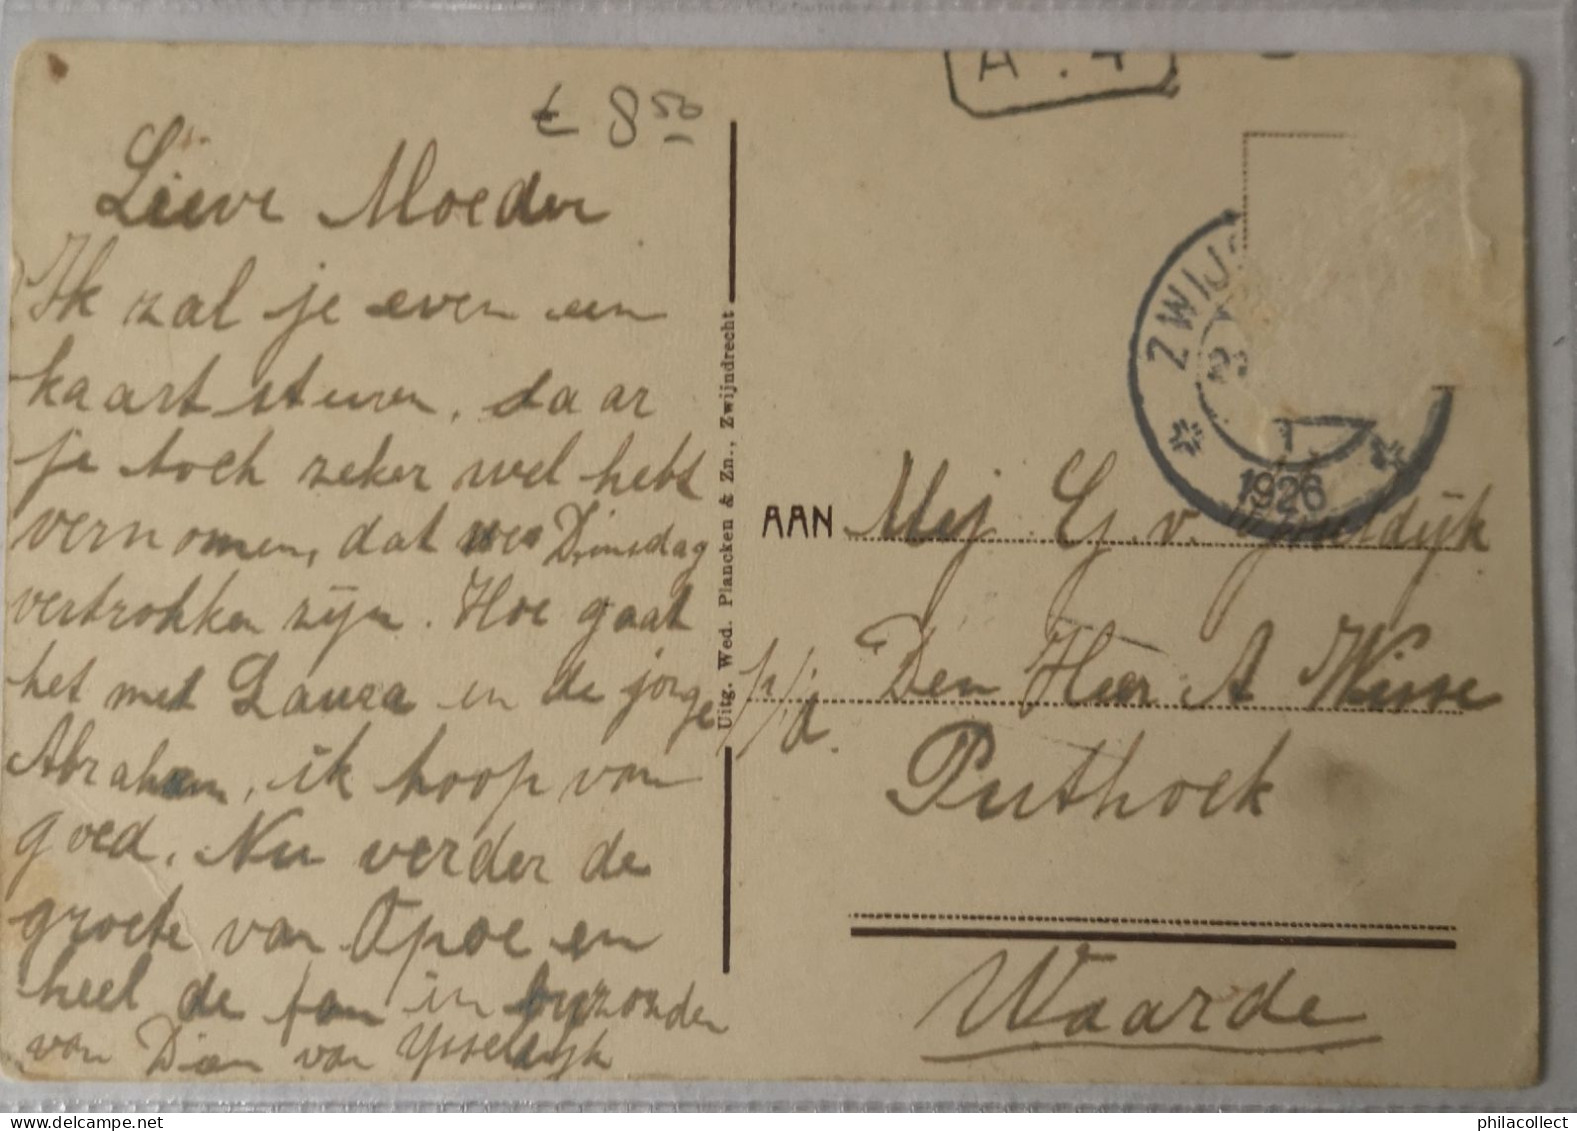 A. 4
€ 8 50
Lieve Moeder
Ik zal je even een
kaart sturen, daar
je toch zeker wel hebt
vernomen, dat we Dinsdag
vertrokken zijn. Hoe gaat
het met Laura en de jorge
Abraham, ik hoop van
goed. Nu verder de
groete van Opoe en
heel de fam in byzonder
van Dien van Ysseldijk
Uitg. Wed. Plancken & Zn., Zwijndrecht
ZWIJ
1926
AAN Mej. G. v.
p/a. Den Heer A Wisse
Puthoek
Waarde
philacollect